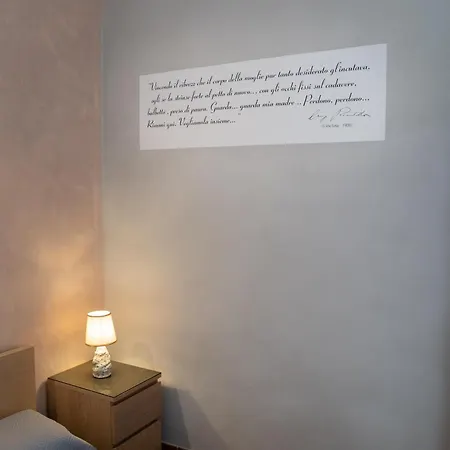 "Vincendo il ribrezzo che il corpo della moglie pur tanto desiderato gl'incuteva,
egli se la strinse forte al petto di nuovo... con gli occhi fissi sul cadavere,
balbettò, preso di paura. Guarda... guarda mia madre... Perdono, perdono...
Rimani qui. Vegliamola insieme..."